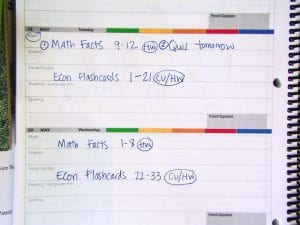 Parent Signature
28 MAY Tuesday
Math
① Math Facts 9-12 HW ② Quiz tomorrow
Science
Social Studies
Econ Flashcards 1-21 CW/HW
Reading / Language Arts
Spelling
Parent Signature
29 MAY Wednesday
Math
Math Facts 1-8 HW
Science
Social Studies
Econ Flashcards 22-33 CW/HW
Reading / Language Arts
Spelling
Parent Signature